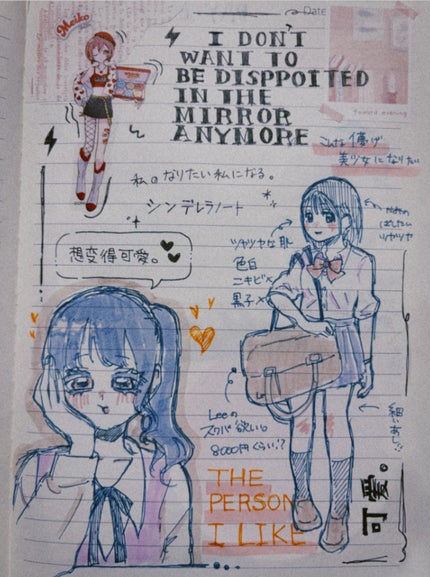 Meiko
Date
I DON'T
WANT TO
BE DISPPOTTED
IN THE
MIRROR
ANYMORE
Sweet evening
こんな儚げ
美少女になりたい
私のなりたい私になる。
シンデレラノート
ツヤツヤな肌
色白
ニキビ×
黒子×
ツヤツヤ
想变得可爱。
Leeの
スクバ欲しい
8000円くらい!?
細いあし!!
THE
PERSON
I LIKE
可爱。